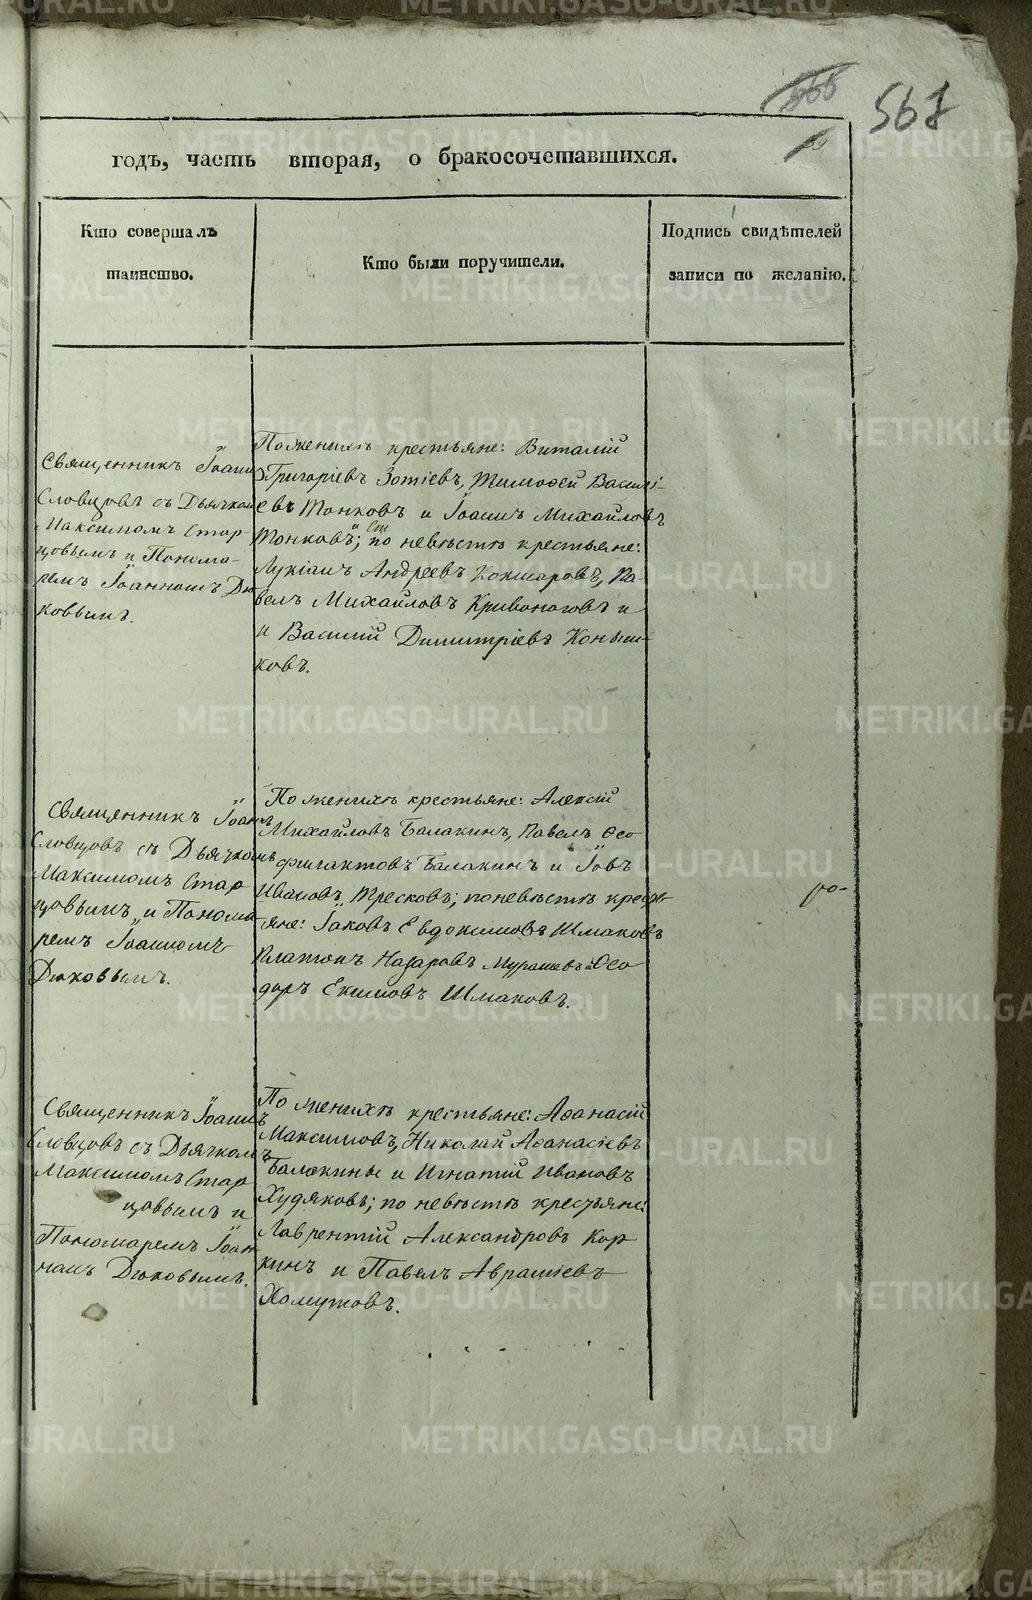 567
годъ, часть вторая, о бракосочетавшихся.
Кто совершалъ
таинство.
Кто были поручители.
Подпись свидѣтелей
записи по желанію.
Священникъ Іоаннъ
Словцовъ съ Дьячкомъ
Максимомъ Стар
цовымъ и Понома-
ремъ Іоанномъ Дю
ковымъ.
По женихѣ крестьяне: Виталій
Григоріевъ Зотіевъ, Тимоѳей Василі-
евъ Тонковъ и Іоаннъ Михайловъ
Тонковъ; по невѣстѣ крестьяне:
Лукіанъ Андреевъ Кокшаровъ, Па-
велъ Михайловъ Кривоноговъ и
и Василій Димитріевъ Коныш
ковъ.
Священникъ Іоаннъ
Словцовъ съ Дьячкомъ
Максимомъ Стар
цовымъ и Понома
ремъ Іоанномъ
Дюковымъ.
По женихѣ крестьяне: Алексій
Михайловъ Балакинъ, Павелъ Ѳео
филактовъ Балакинъ и Іовъ
Ивановъ Тресковъ; по невѣстѣ кресть
яне: Іаковъ Евдокимовъ Шмаковъ
Платонъ Назаровъ Мурашевъ и Ѳео
доръ Екимовъ Шмаковъ.
Священникъ Іоаннъ
Словцовъ съ Дьячкомъ
Максимомъ Стар
цовымъ и
Пономаремъ Іоан
номъ Дюковымъ.
По женихѣ крестьяне: Аѳанасій
Максимовъ, Николай Аѳанасіевъ
Балакины и Игнатій Ивановъ
Худяковъ; по невѣстѣ крестьяне:
Лаврентій Александровъ Кор
кинъ и Павелъ Аврамiевъ
Хомутовъ.
METRIKI.GASO-URAL.RU